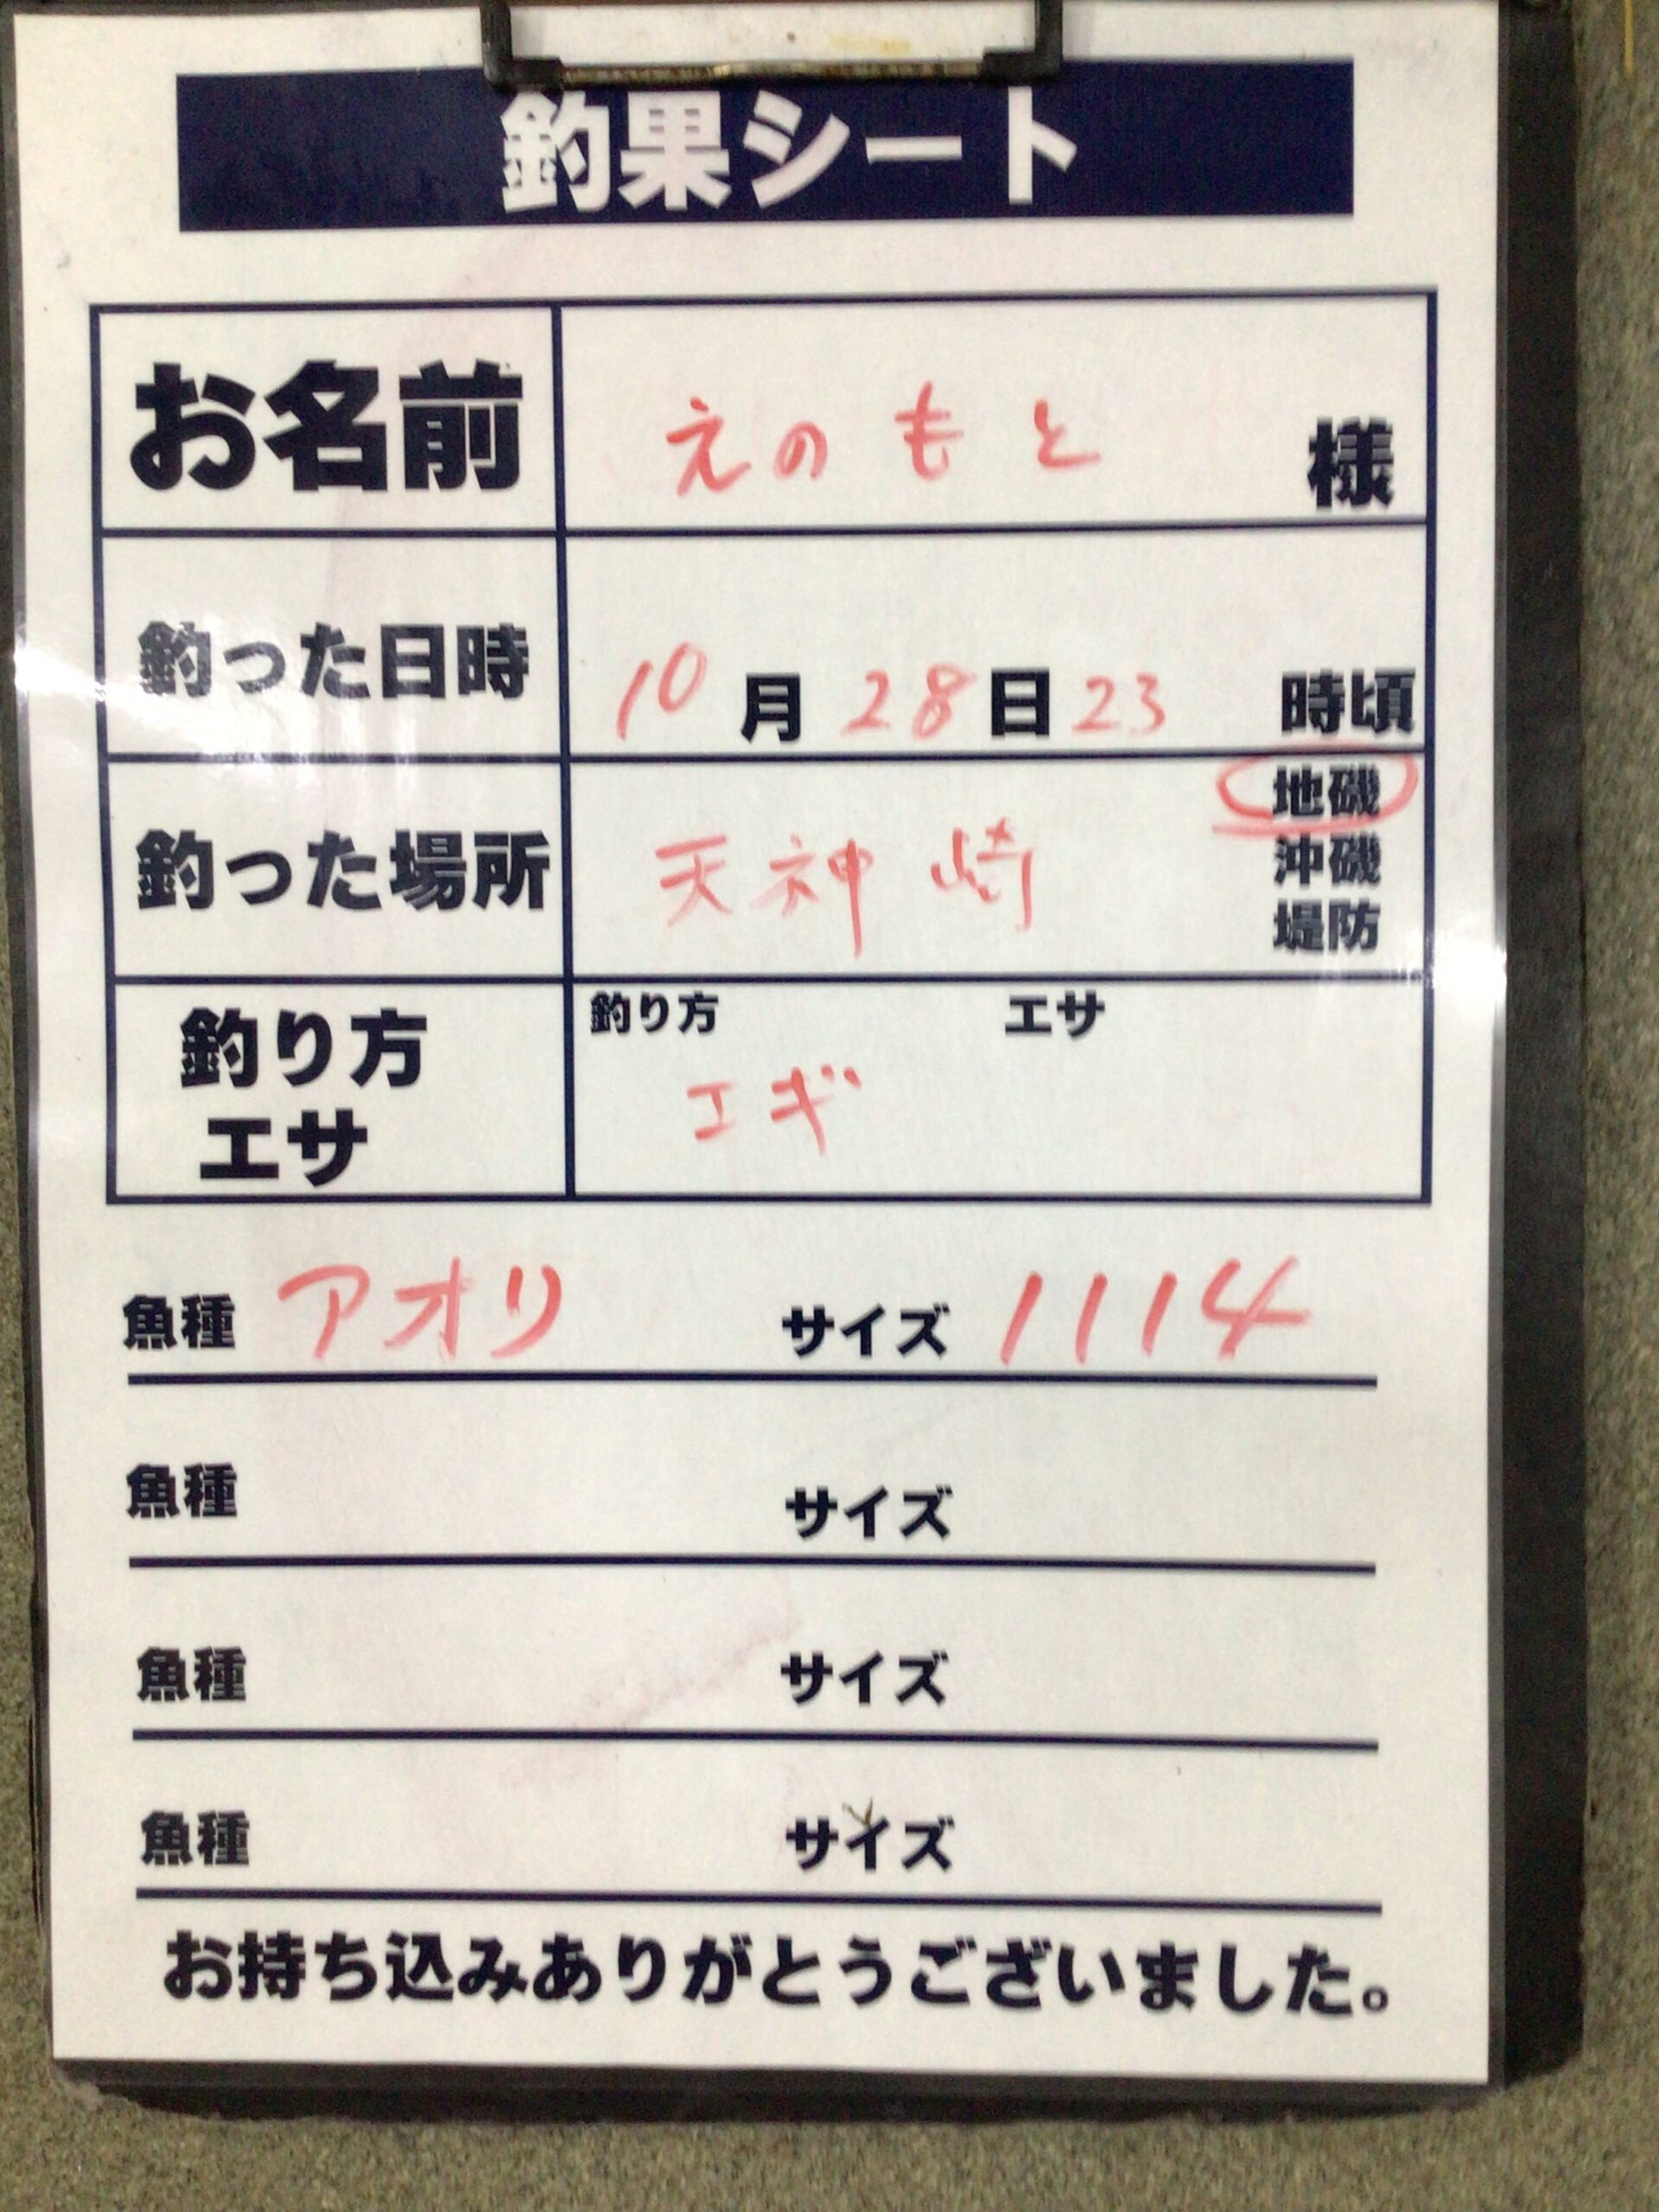 釣果シート
お名前 えのもと 様
釣った日時 10月28日23時頃
釣った場所 天神崎 地磯
沖磯
堤防
釣り方 エサ
釣り方
エサ
エギ
魚種 アオリ サイズ 1114
魚種 サイズ
魚種 サイズ
魚種 サイズ
お持ち込みありがとうございました。